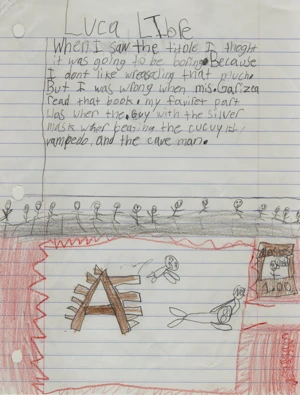 Luca LIbre
When I saw the titole I theght
it was going to be boring. Because
I dont like wreasaling that much.
But I was wrong when mis. Garizea
read that book. my favirit part
was wher the guy with the silver
mask wher beating the cucuy, the
vampedo, and the cave man.
A
1.00